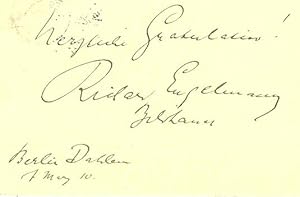 Herzliche Gratulation!
Richard Engelmann
Bildhauer
Berlin Dahlem
7 May 10.